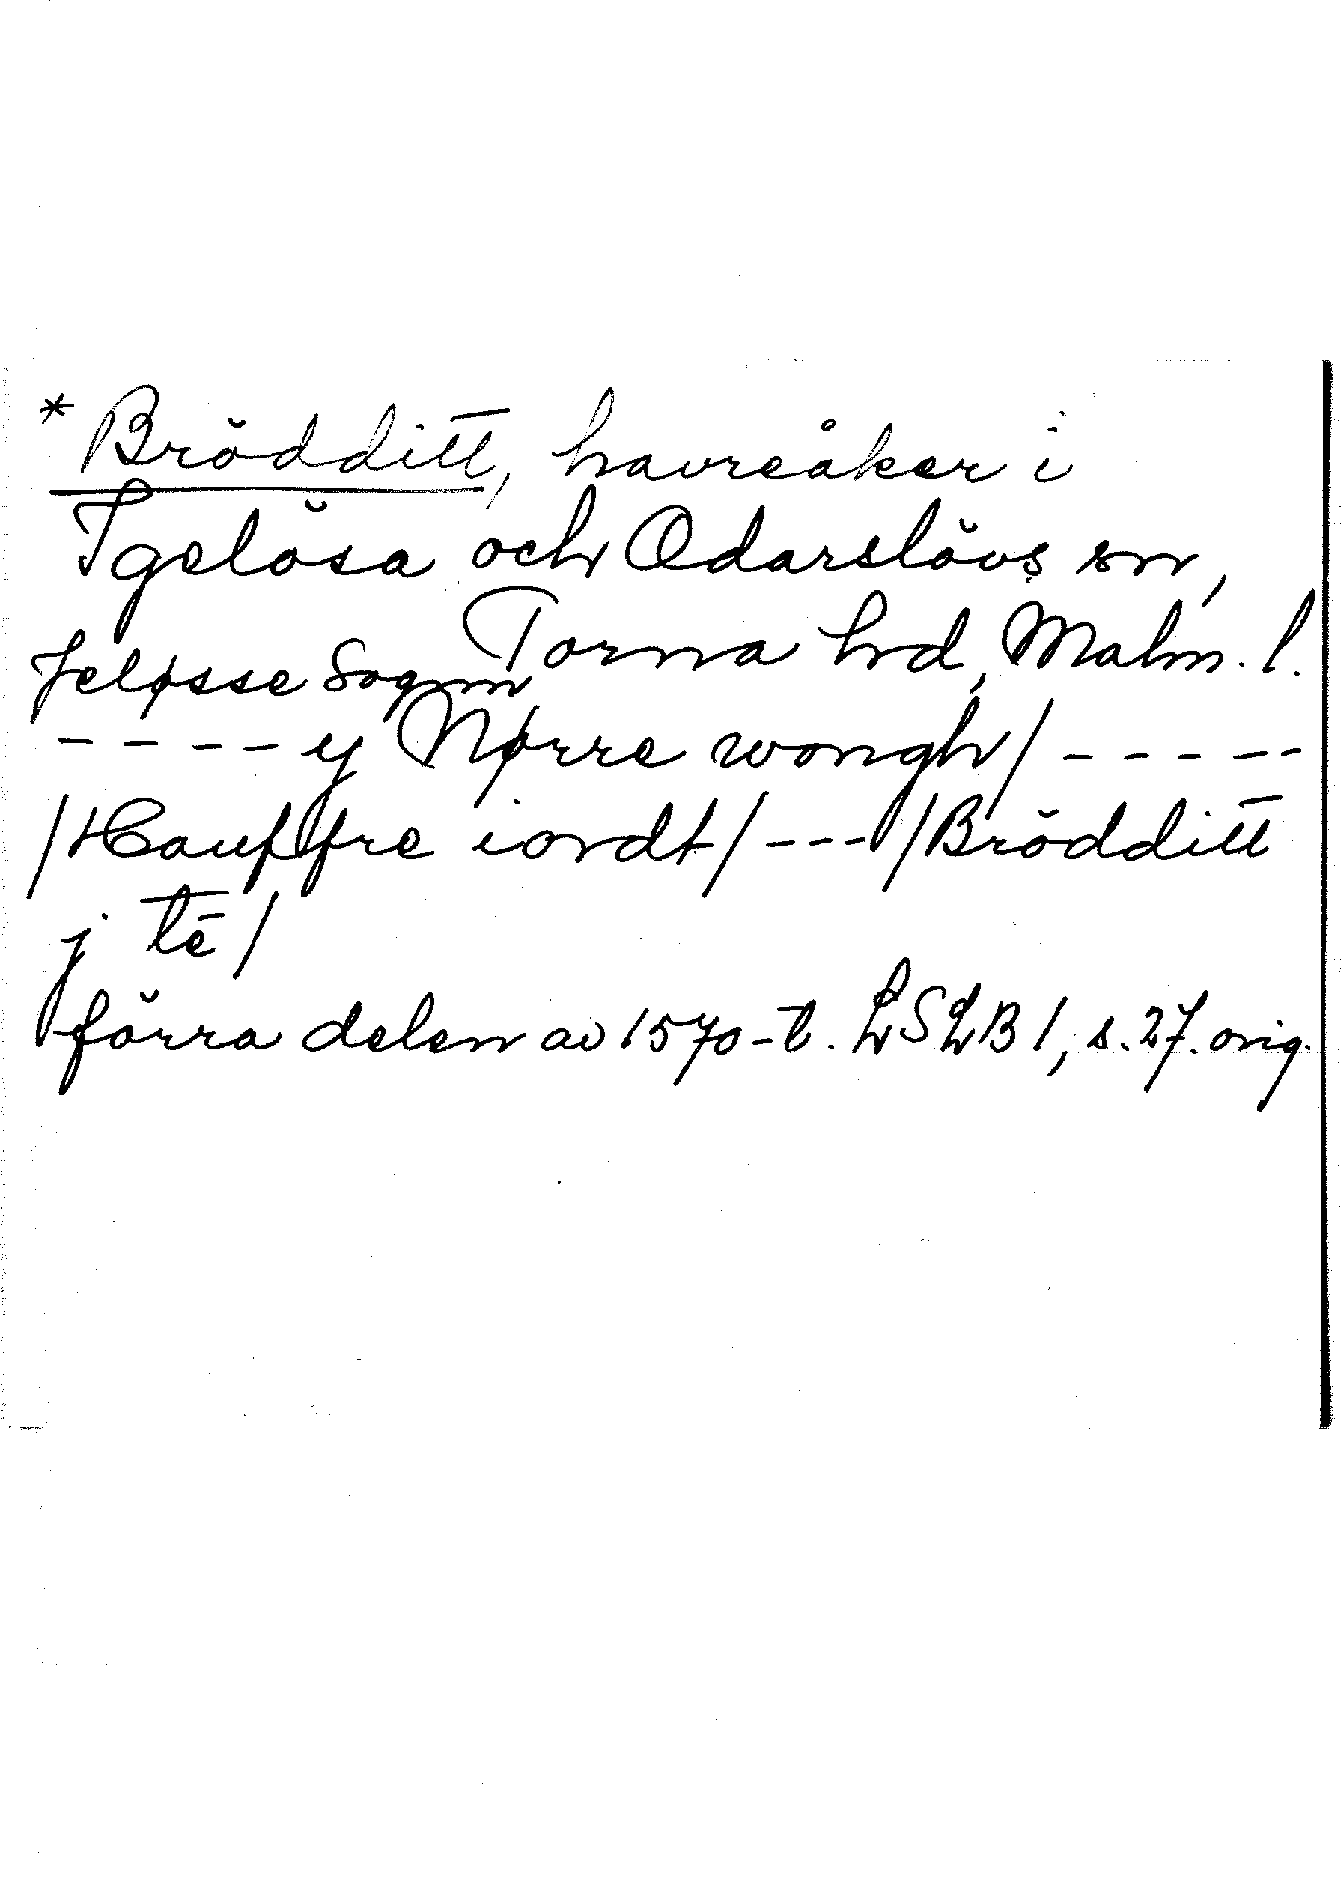 * Brödditt, havreåker i
Igelösa och Odarslövs sn,
Torna hd, Malm. l.
Jeløsse Sogm
---- y Nørre wongh/ -----
/Hauffre iordt/ --- /Brödditt
j tē/
förra delen av 1570-t. LSLB 1, s. 27. orig.